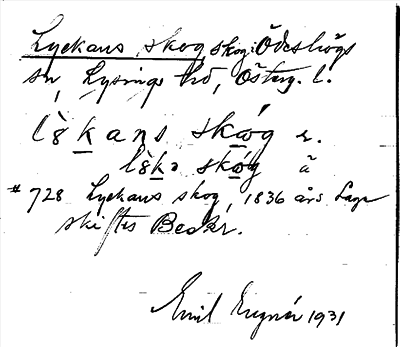 Lyckans skog, skog: Ödeshögs
sn, Lysings hd, Österg. l.
lȍkans skóg r.
lȍkə skóg ä
# 728 Lyckans skog, 1836 års Laga
skiftes Beskr.
Emil 1931